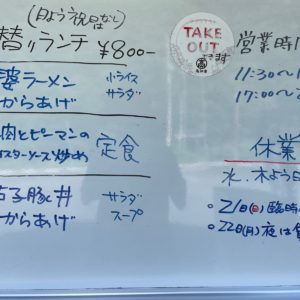 (日よう祝日なし)
替りランチ ¥800-
婆ラーメン 小ライス
からあげ サラダ
肉とピーマンの
イスターソース炒め 定食
子豚丼 サラダ
からあげ スープ
TAKE
OUT
できます
営業時
11:30~
17:00~
休業
水、木よう日
21日(日)臨時
22日(月)夜は